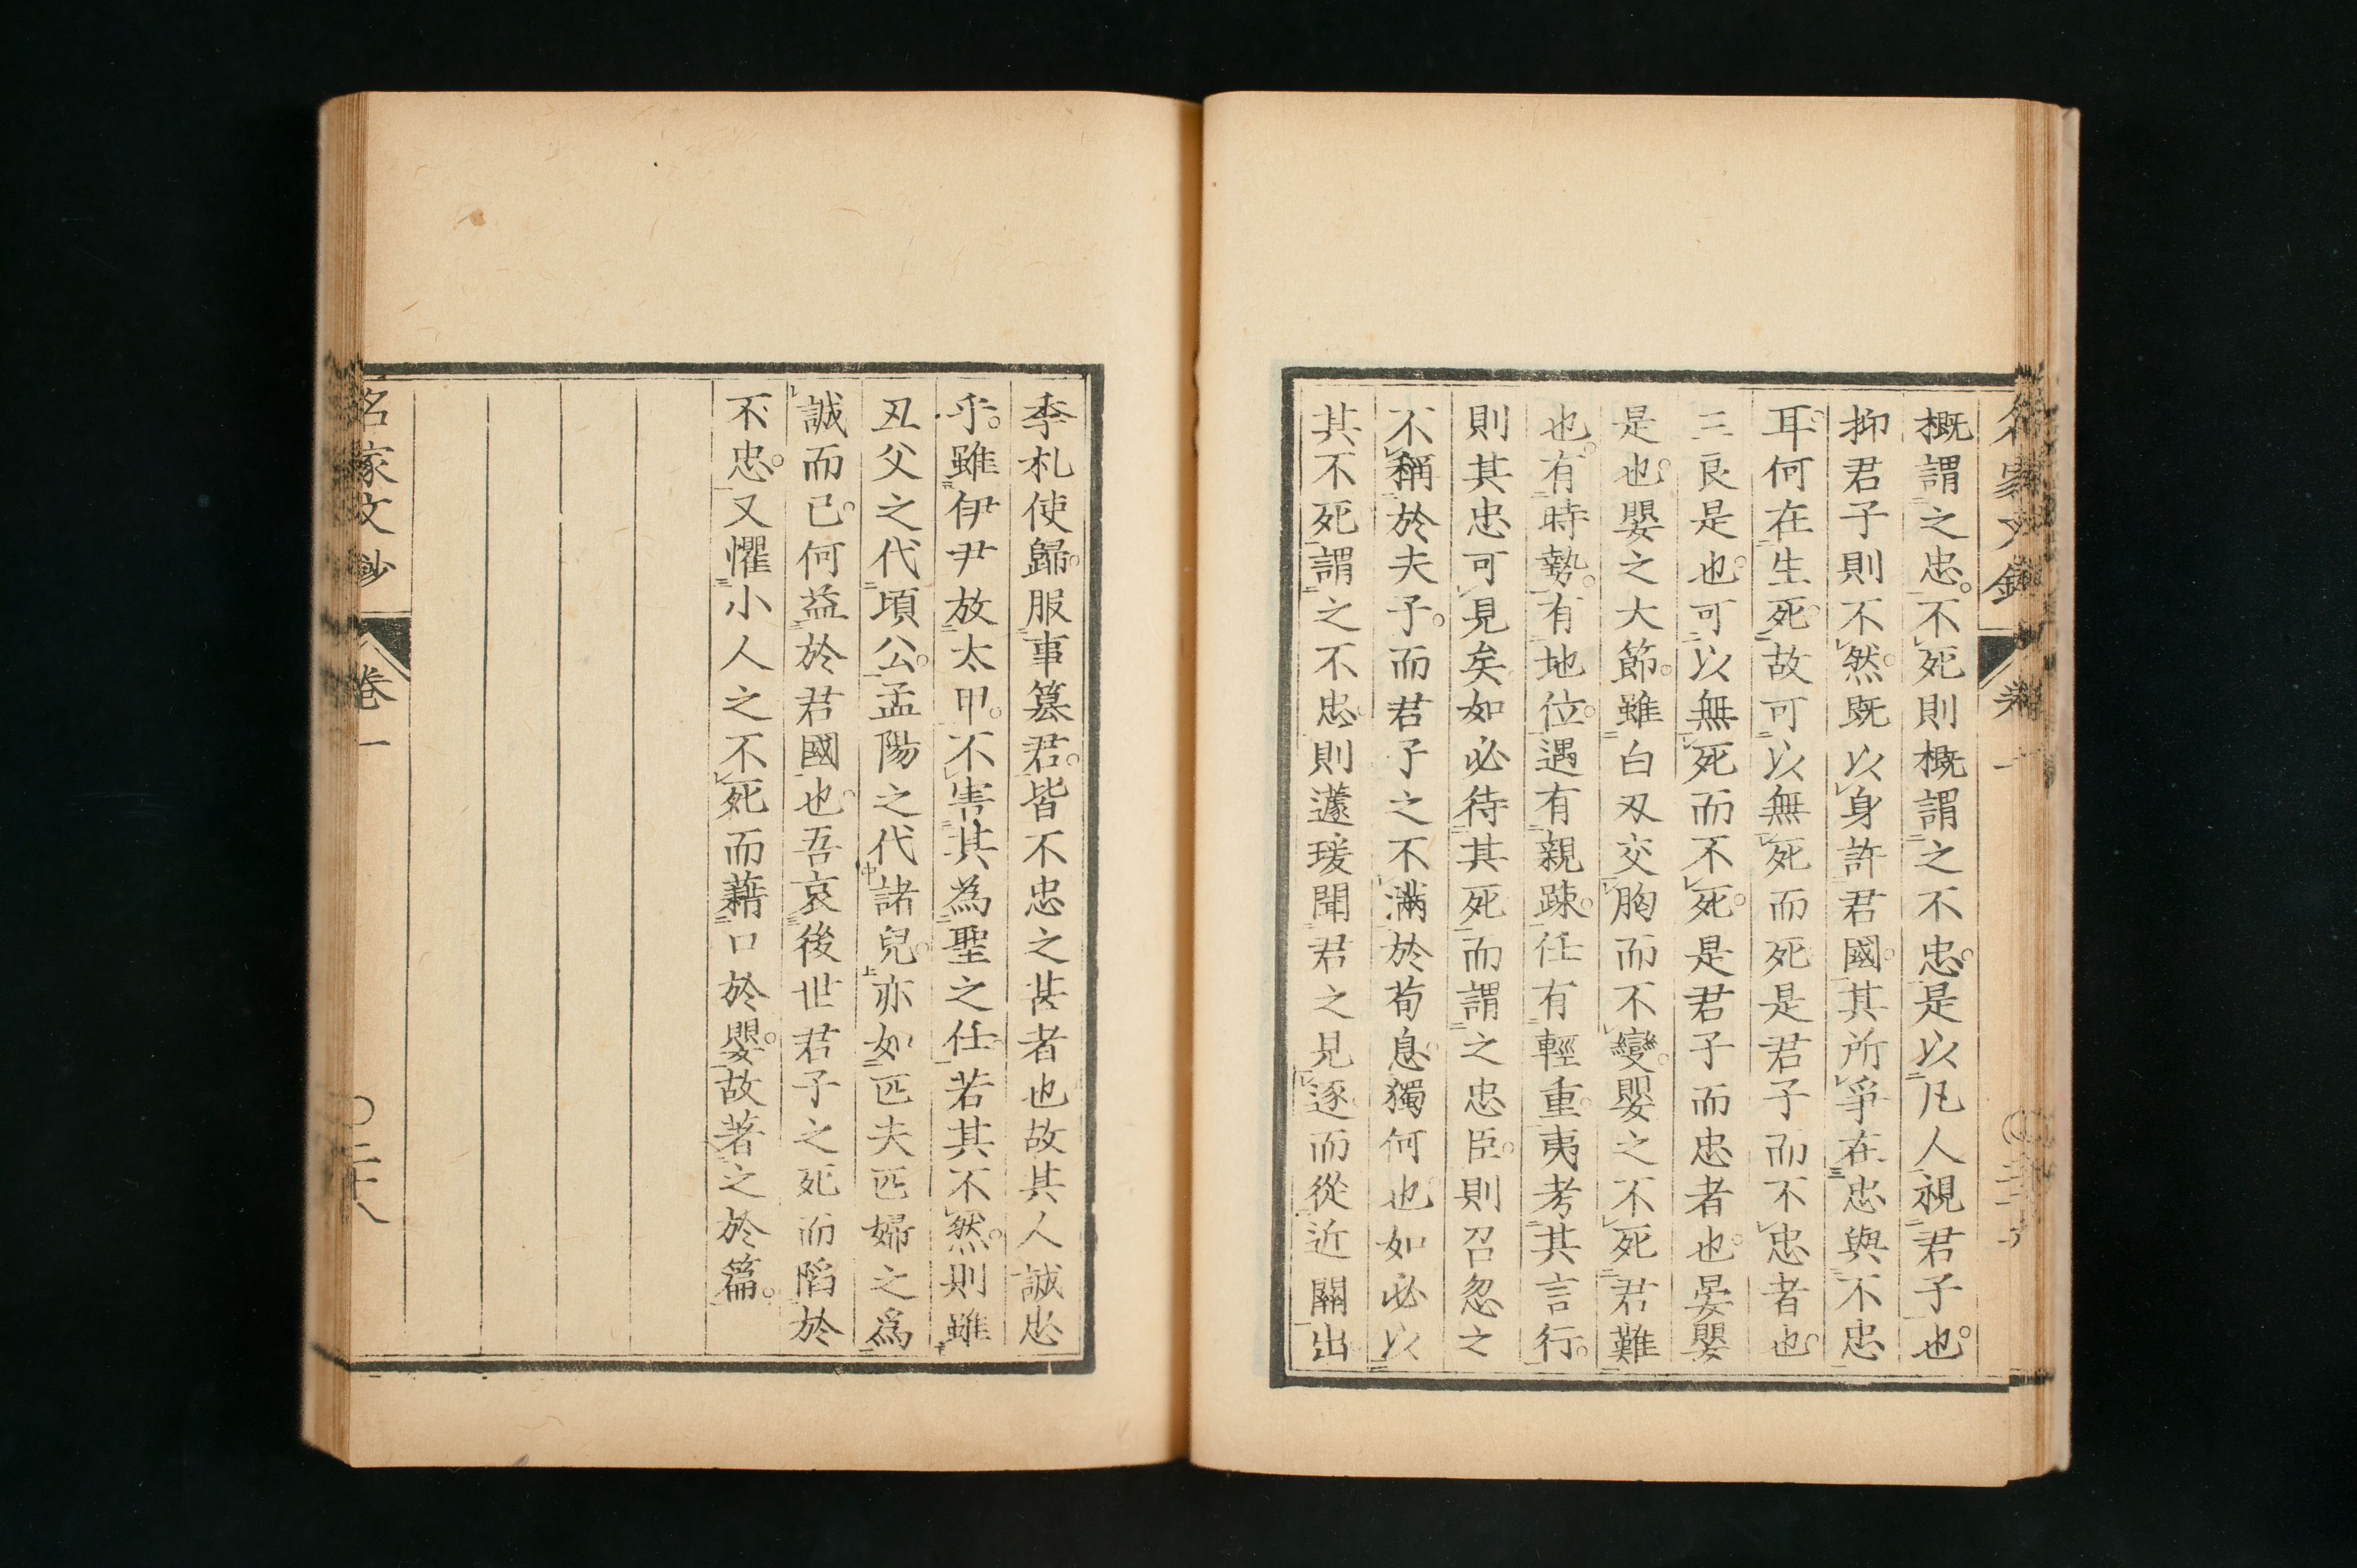 名家文鈔 卷一
概謂之忠。不死則概謂之不忠。是以凡人視君子也。
抑君子則不然。既以身許君國。其所爭在忠與不忠
耳。何在生死。故可以無死而死。是君子而不忠者也。
三良是也。可以無死而不死。是君子而忠者也。晏嬰
是也。嬰之大節。雖白刃交胸而不變。嬰之不死君難
也。有時勢。有地位。遇有親疎。任有輕重。夷考其言行。
則其忠可見矣。如必待其死而謂之忠臣。則召忽之
不稱於夫子。而君子之不滿於荀息。獨何也。如必以
其不死謂之不忠。則蘧瑗聞君之見逐。而從近關出
季札使歸。服事簒君。皆不忠之甚者也故其人誠忠
乎。雖伊尹放太甲。不害其為聖之任。若其不然。則雖
丑父之代頃公。孟陽之代諸兒。亦如匹夫匹婦之爲
誠而已。何益於君國也。吾哀後世君子之死而陷於
不忠。又懼小人之不死而藉口於嬰。故著之於篇。
名家文鈔 卷一 〇二十八